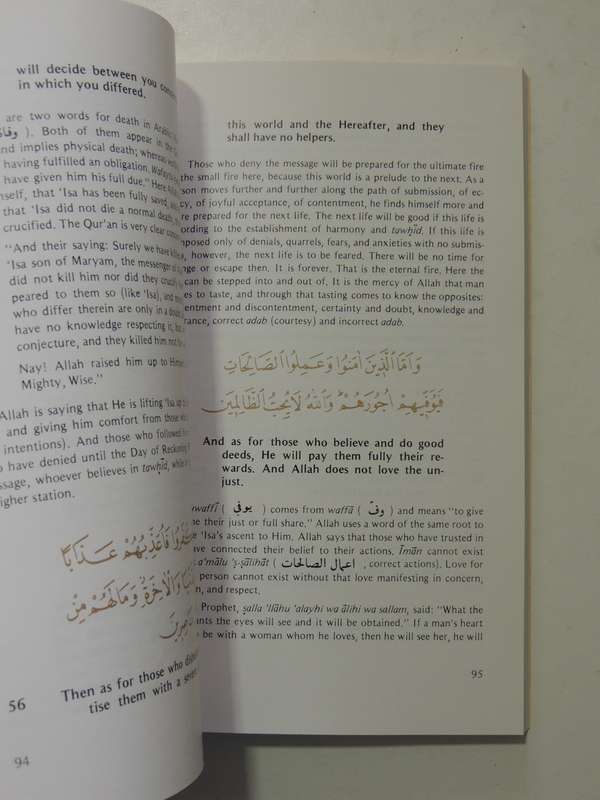 will decide between you
in which you differed.
are two words for death in
). Both of them appear in the
and implies physical death; whereas
having fulfilled an obligation.
have given him his full due." Here
self, that 'Isa has been fully saved,
that 'Isa did not die a normal death,
crucified. The Qur'an is very clear
"And their saying: Surely we have
'Isa son of Maryam, the messenger of
did not kill him nor did they
peared to them so (like 'Isa), and
who differ therein are only in a doubt
have no knowledge respecting it, but
conjecture, and they killed him not
Nay! Allah raised him up to
Mighty, Wise."
Allah is saying that He is lifting 'Isa up
and giving him comfort from those
intentions). And those who followed
have denied until the Day of Reckoning
ssage, whoever believes in tawḥīd, while
igher station.
فَأُعَذِّبُهُمْ عَذَابًا
وَالْآخِرَةِ وَمَالَهُمْ مِنْ
56
Then as for those who
tise them with a
94
this world and the Hereafter, and they
shall have no helpers.
Those who deny the message will be prepared for the ultimate fire
the small fire here, because this world is a prelude to the next. As a
son moves further and further along the path of submission, of ec-
cy, of joyful acceptance, of contentment, he finds himself more and
re prepared for the next life. The next life will be good if this life is
ording to the establishment of harmony and tawḥīd. If this life is
mposed only of denials, quarrels, fears, and anxieties with no submis-
, however, the next life is to be feared. There will be no time for
nge or escape then. It is forever. That is the eternal fire. Here the
can be stepped into and out of. It is the mercy of Allah that man
es to taste, and through that tasting comes to know the opposites:
entment and discontentment, certainty and doubt, knowledge and
rance, correct adab (courtesy) and incorrect adab.
وَأَمَّا الَّذِينَ آمَنُوا وَعَمِلُوا الصَّالِحَاتِ
فَيُوَفِّيهِمْ أُجُورَهُمْ وَاللَّهُ لَا يُحِبُّ الظَّالِمِينَ
And as for those who believe and do good
deeds, He will pay them fully their re-
wards. And Allah does not love the un-
just.
uwaffī ( يوفي ) comes from waffā ( وفّى ) and means "to give
ne their just or full share." Allah uses a word of the same root to
'Isa's ascent to Him. Allah says that those who have trusted in
ave connected their belief to their actions. Īmān cannot exist
a'mālu 'ṣ-ṣāliḥāt ( اعمال الصالحات , correct actions). Love for
person cannot exist without that love manifesting in concern,
n, and respect.
Prophet, ṣalla 'llāhu 'alayhi wa ālihi wa sallam, said: "What the
nts the eyes will see and it will be obtained." If a man's heart
be with a woman whom he loves, then he will see her, he will
95